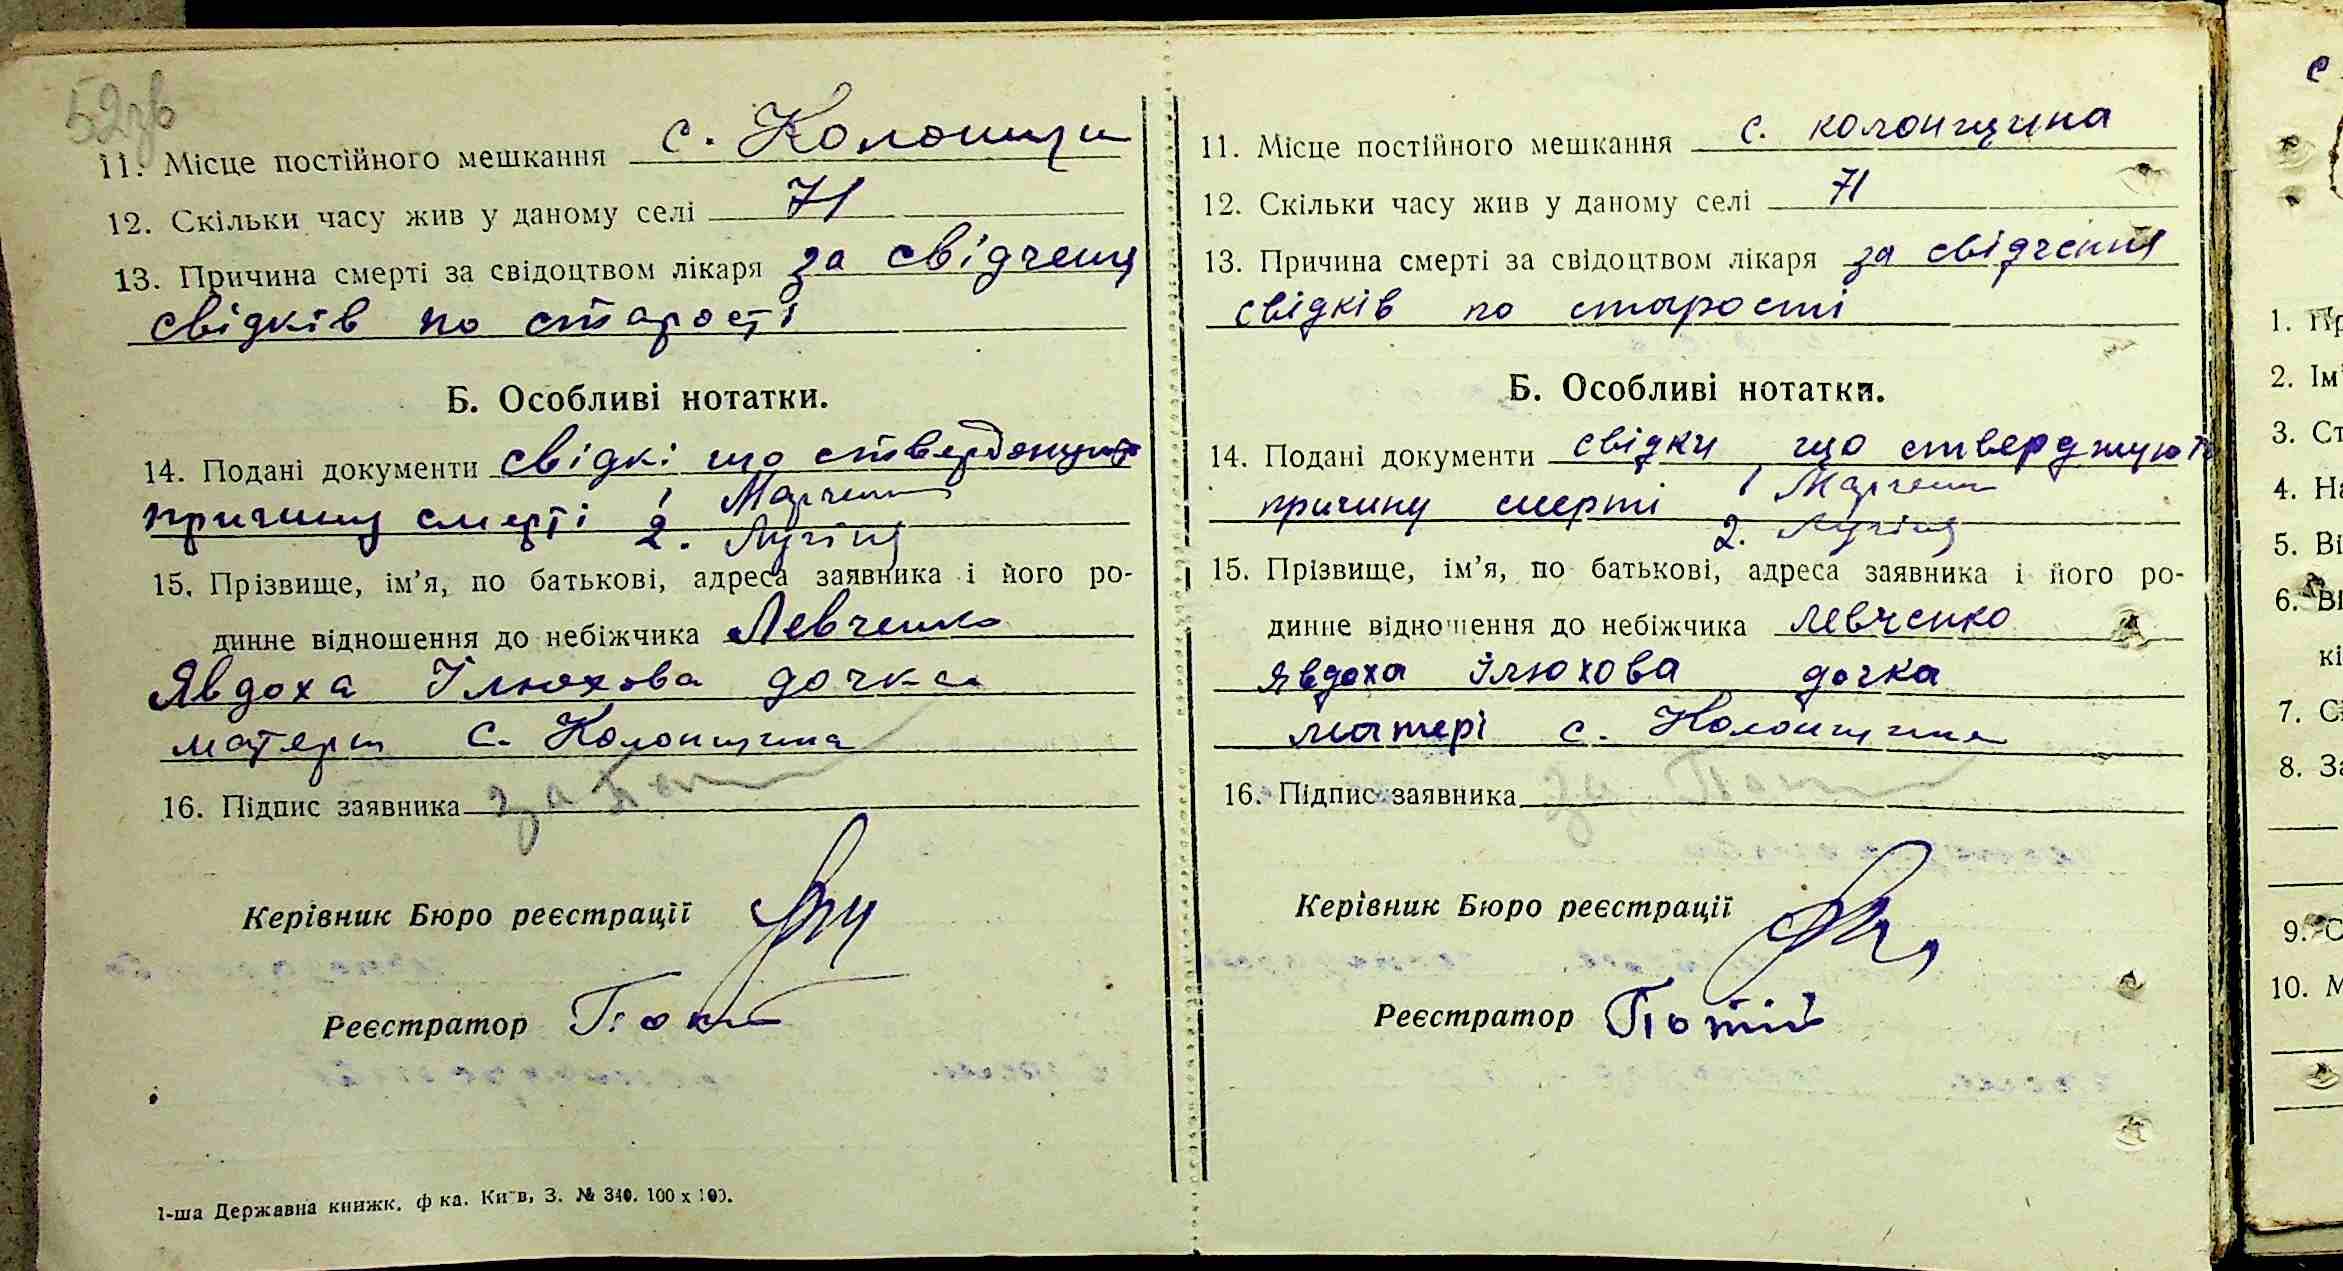 52зв
11. Місце постійного мешкання с. Колонщи
12. Скільки часу жив у даному селі 71
13. Причина смерті за свідоцтвом лікаря за свідченя
свідків по старості
Б. Особливі нотатки.
14. Подані документи свідкі що стверджують
причину смерті 1 Марченко
2. Лугіна
15. Прізвище, ім’я, по батькові, адреса заявника і його ро-
динне відношення до небіжчика Левченко
Явдоха Ілюхова дочка
матері с. Колонщина
16. Підпис заявника за
Керівник Бюро реєстрації
Реєстратор
1-ша Державна книжк. ф ка. Київ, З. № 340. 100 х 100.
11. Місце постійного мешкання с. колонщина
12. Скільки часу жив у даному селі 71
13. Причина смерті за свідоцтвом лікаря за свідчення
свідків по старості
Б. Особливі нотатки.
14. Подані документи свідки що стверджують
причину смерті 1 Марченко
2. Лугіна
15. Прізвище, ім’я, по батькові, адреса заявника і його ро-
динне відношення до небіжчика Левченко
Явдоха Ілюхова дочка
матері с. Колонщина
16. Підпис заявника за
Керівник Бюро реєстрації
Реєстратор Потій
с
1. Пр
2. Ім’
3. Ст
4. На
5. Ві
6. Ві
кі
7. С
8. За
9. С
10. М